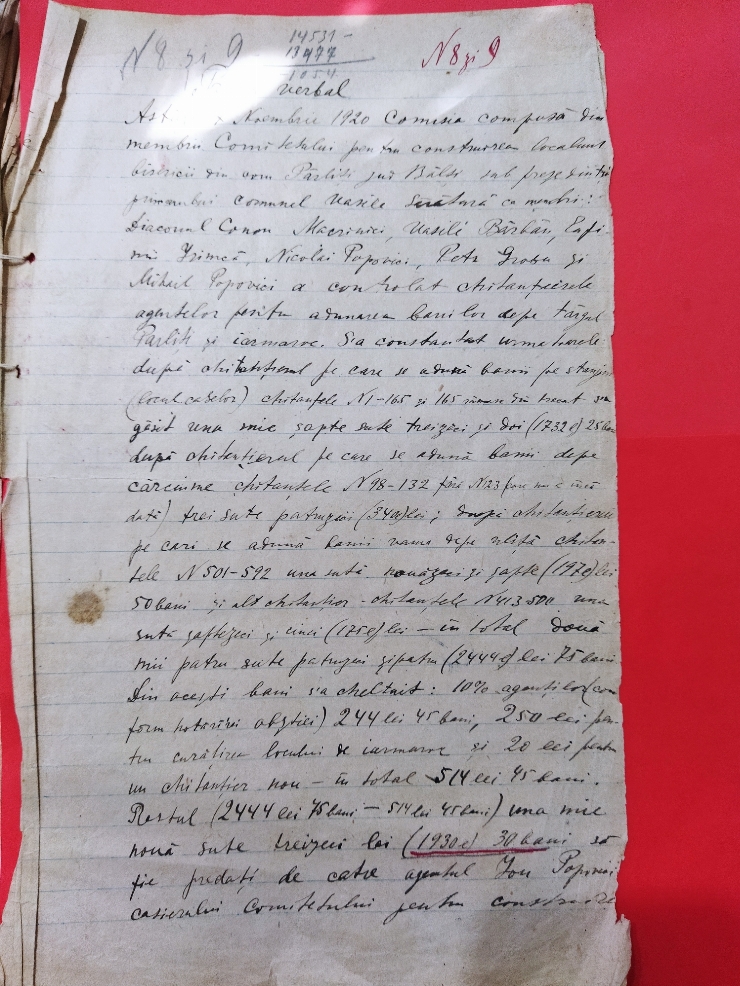 N 8 și 9
14531-
13477
1054
N 8 și 9
verbal
Noembrie 1920 Comisia compusă din
membrii Comitetului pentru construirea localului
bisericii din com Pârliți jud Bălți sub președinția
primarului comunal Vasile cu membrii:
Diaconul Conon Macrinici, Vasile Bărbăr, Eafi
mii Irimcă, Nicolai Popovici, Petr Grosu și
Mihail Popovici a controlat chitanțierele
agentelor pentru adunarea banilor depe târgul
Parliti și iarmaroc. S'a constatat urmatoarele:
după chitanțierul pe care se adună banii pe stânjeni
(locul caselor) chitanțele N 1-165 și 165 din trecut s'au
găsit una mie șapte sute treizeci și doi (1732) 25 ban
după chitanțierul pe care se adună banii depe
cârciume chitanțele N 98-132 fără N 123 (care nu e încă
dată) trei sute patruzeci (340) lei; după chitanțierul
pe care se adună banii vama depe vită chitan-
țele N 501-592 una sută nouăzeci și șapte (197) lei
50 bani și alt chitanțier - chitanțele N 413-500 una
sută șaptezeci și cinci (175) lei - în total două
mii patru sute patruzeci și patru (2444) lei 75 bani
Din acești bani s'a cheltuit: 10% agenților (con
form hotărîrei obștiei) 244 lei 45 bani, 250 lei pen-
tru curățirea locului de iarmaroc și 20 lei pentru
un chitanțier nou - în total 514 lei 45 bani.
Restul (2444 lei 75 bani - 514 lei 45 bani) una mie
nouă sute treizeci lei (1930) 30 bani să
fie predați de catre agentul Ion Popovici
casierului Comitetului pentru construire